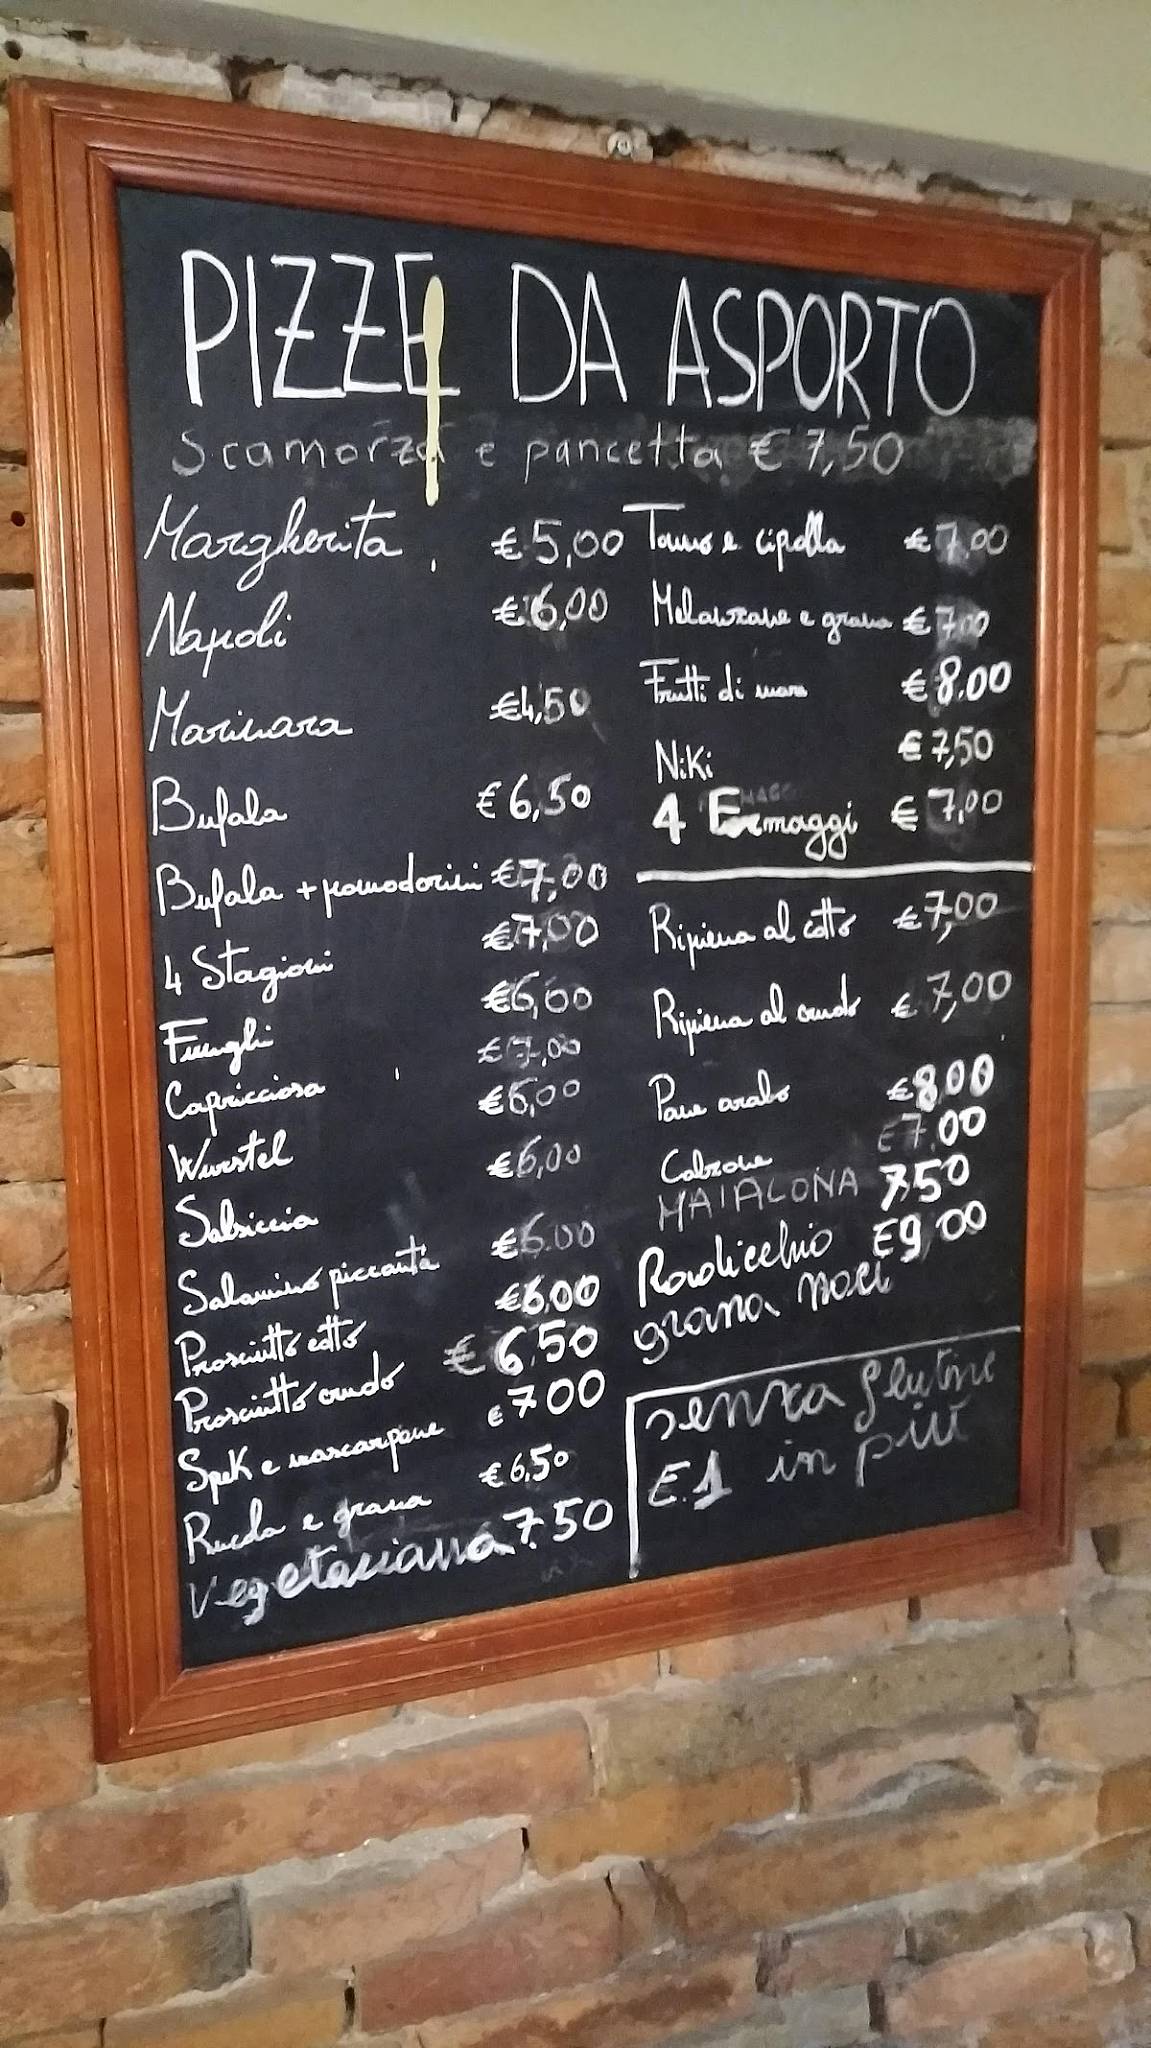 PIZZE DA ASPORTO
Scamorza e pancetta € 7,50
Margherita € 5,00
Napoli € 6,00
Marinara € 4,50
Bufala € 6,50
Bufala + pomodorini € 7,00
4 Stagioni € 7,00
Funghi € 6,00
Capricciosa € 7,00
Wurstel € 6,00
Salsiccia € 6,00
Salamino piccante € 6.00
Prosciutto cotto € 6,00
Prosciutto crudo € 6,50
Spek e mascarpone € 7 00
Rucola e grana € 6,50
Vegetariana 7.50
Tonno e cipolla € 7,00
Melanzane e grana € 7,00
Frutti di mare € 8.00
Niki € 7,50
4 Formaggi € 7,00
Ripiena al cotto € 7,00
Ripiena al crudo € 7,00
Pane arabo € 8,00
Calzone € 7,00
MAIALONA 7,50
Radicchio €9,00
grana noci
senza glutine
€.1 in più